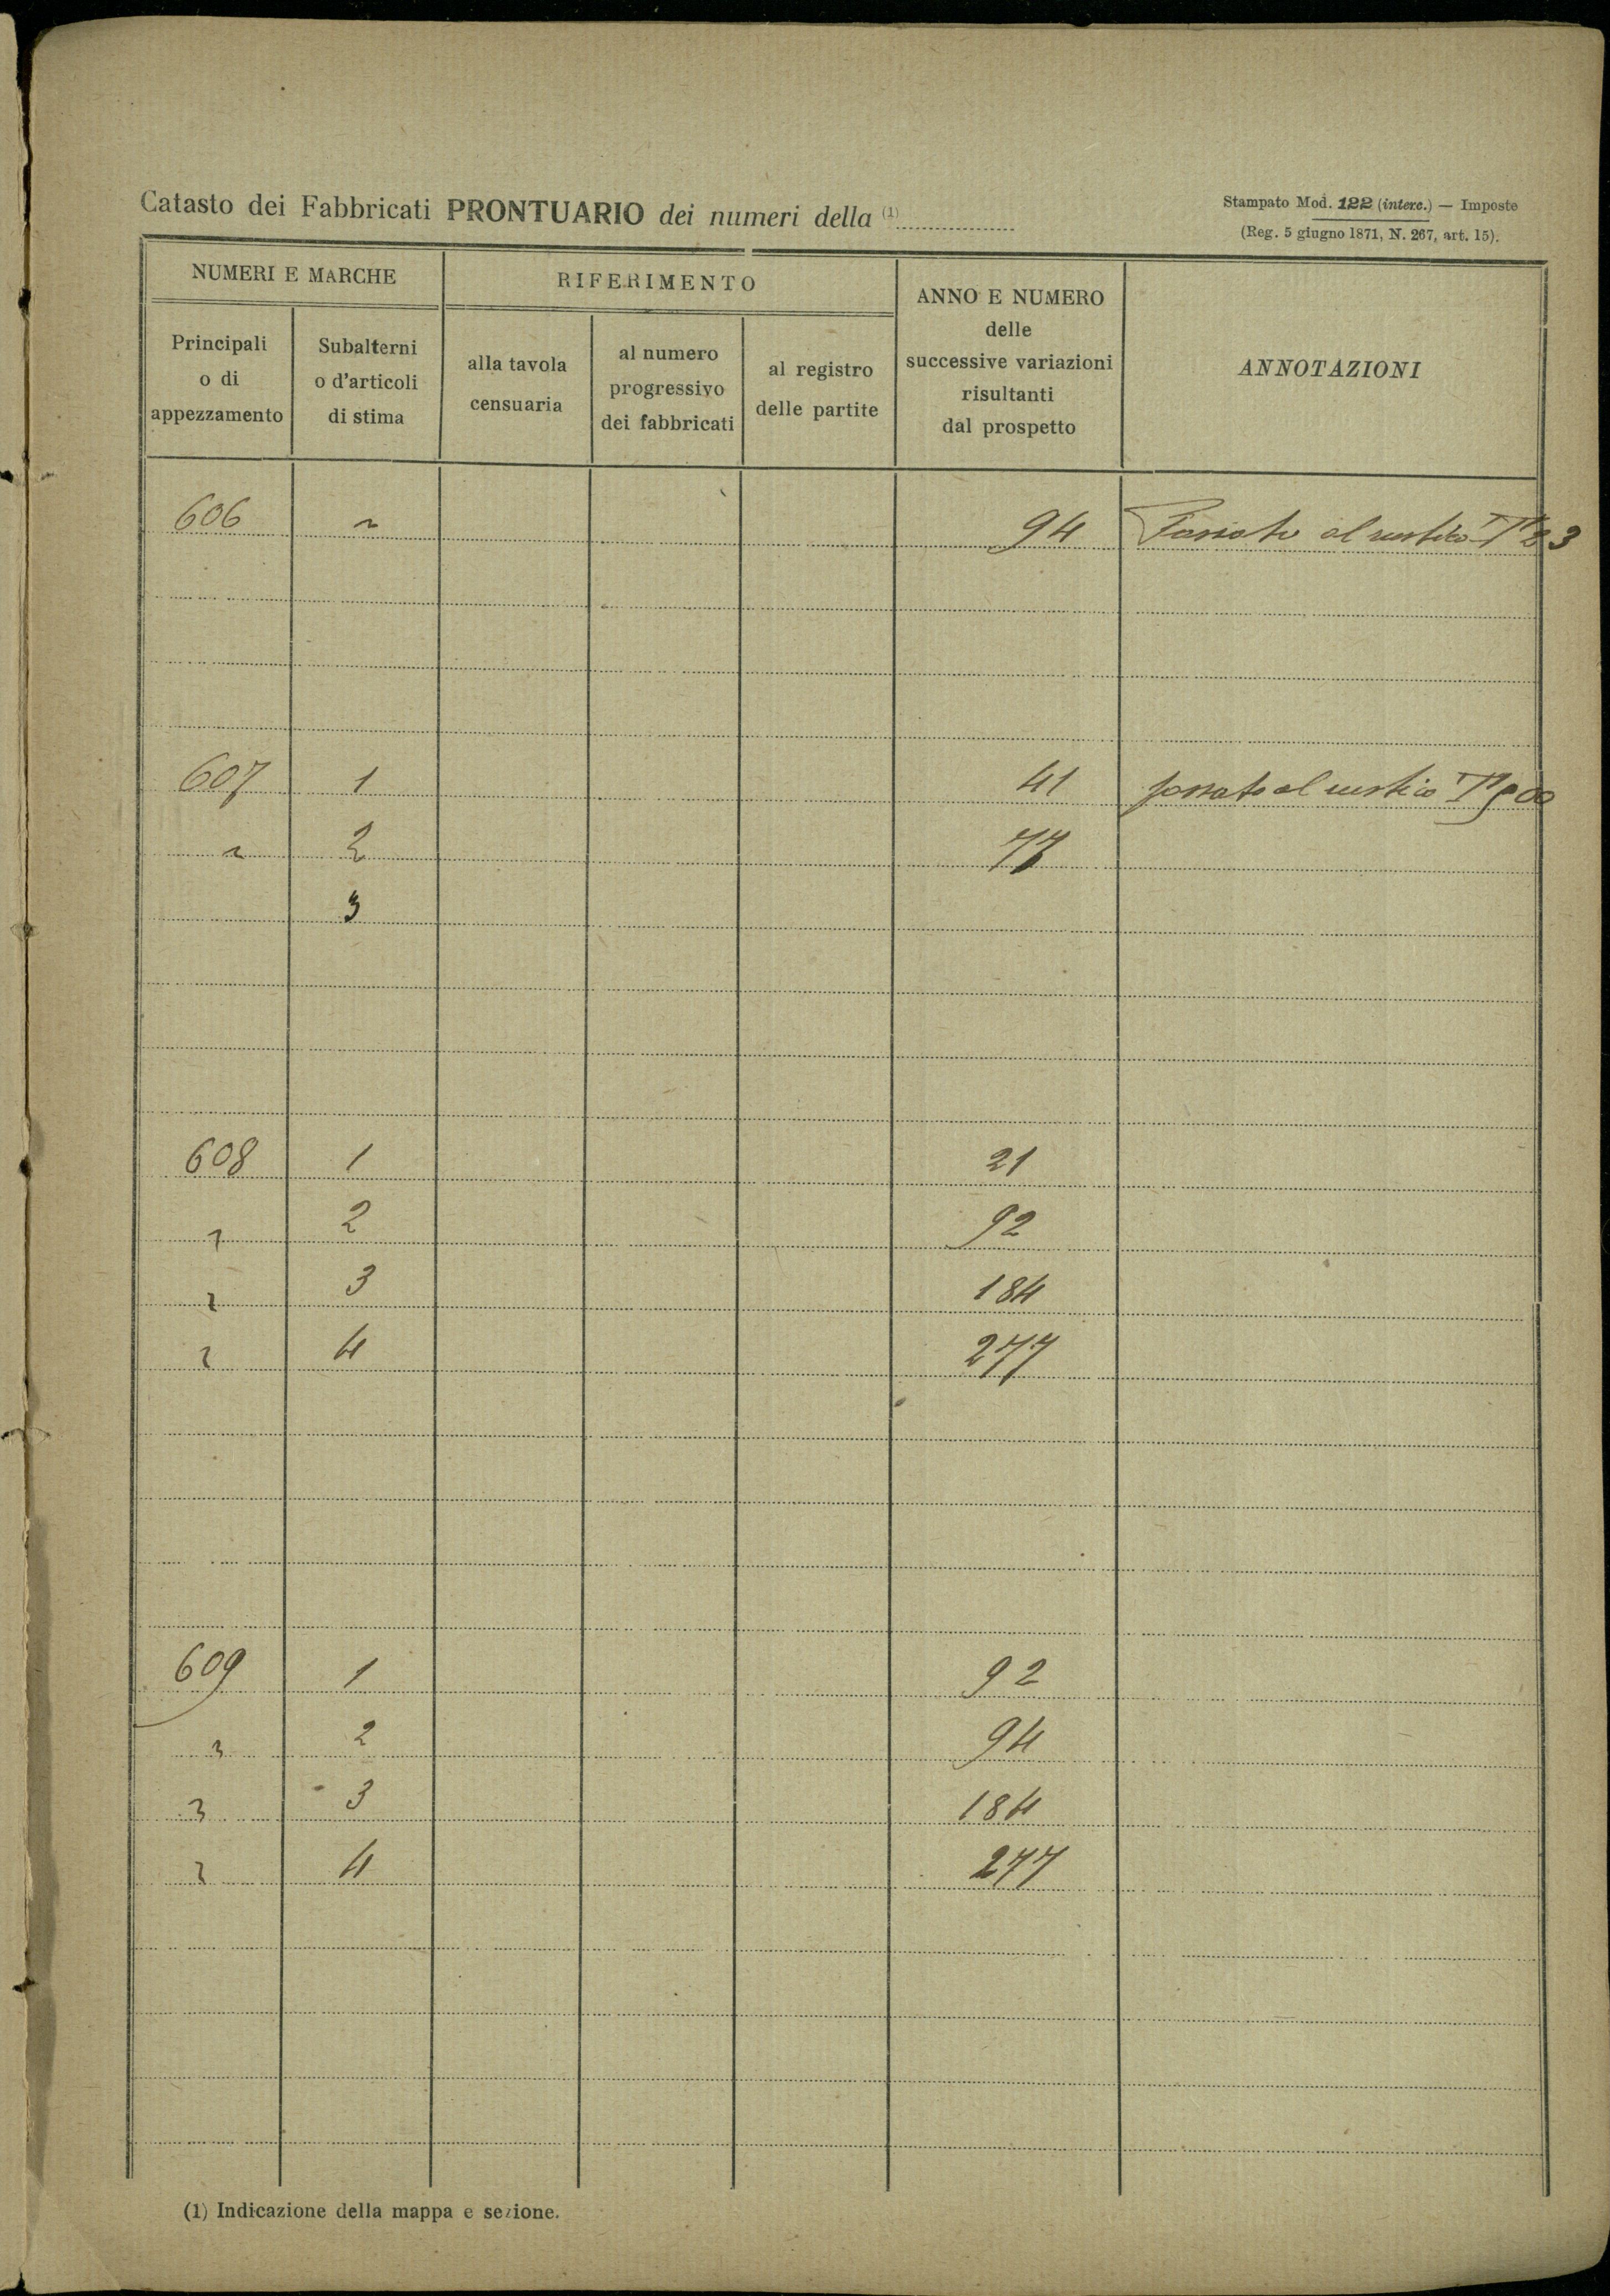 Catasto dei Fabbricati PRONTUARIO dei numeri della (1)
Stampato Mod. 122 (interc.) — Imposte
(Reg. 5 giugno 1871, N. 267, art. 15).
NUMERI E MARCHE
RIFERIMENTO
ANNO E NUMERO
delle
successive variazioni
risultanti
dal prospetto
ANNOTAZIONI
Principali
o di
appezzamento
Subalterni
o d'articoli
di stima
alla tavola
censuaria
al numero
progressivo
dei fabbricati
al registro
delle partite
606 ~ 94 Passato al rustico
607 1 41 passato al rustico
" 2 77
3
608 1 21
" 2 92
" 3 184
" 4 277
609 1 92
" 2 94
" 3 184
" 4 277
(1) Indicazione della mappa e sezione.